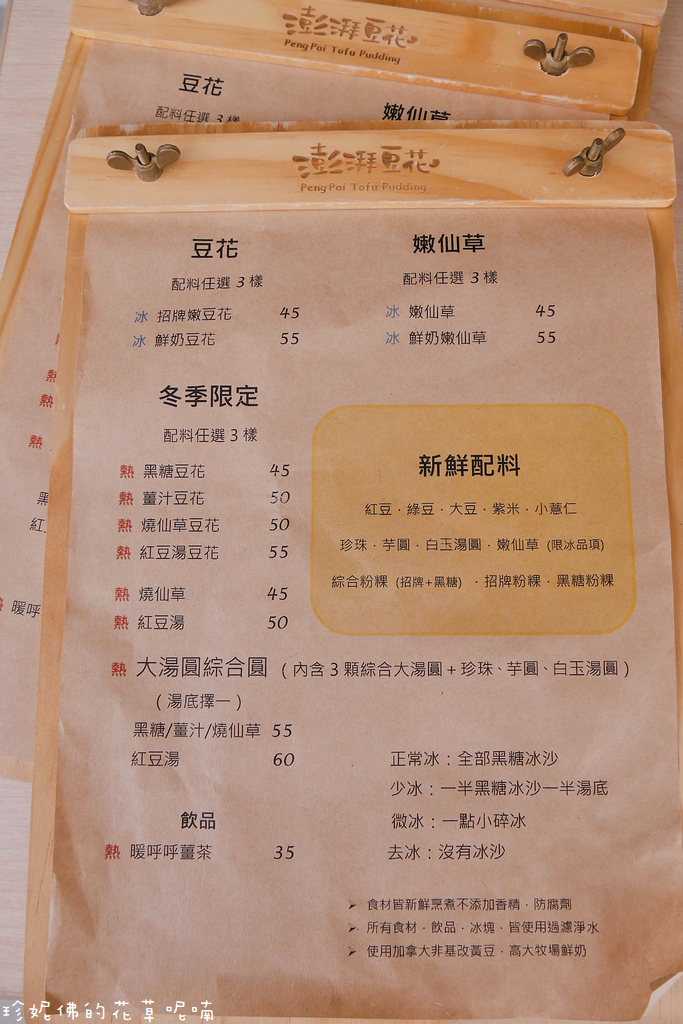 澎湃豆花
PengPai Tofu Pudding
豆花
配料任選 3 樣
嫩仙草
澎湃豆花
PengPai Tofu Pudding
豆花
配料任選 3 樣
冰 招牌嫩豆花 45
冰 鮮奶豆花 55
嫩仙草
配料任選 3 樣
冰 嫩仙草 45
冰 鮮奶嫩仙草 55
冬季限定
配料任選 3 樣
熱 黑糖豆花 45
熱 薑汁豆花 50
熱 燒仙草豆花 50
熱 紅豆湯豆花 55
熱 燒仙草 45
熱 紅豆湯 50
新鮮配料
紅豆．綠豆．大豆．紫米．小薏仁
珍珠．芋圓．白玉湯圓．嫩仙草 (限冰品項)
綜合粉粿 (招牌+黑糖) ．招牌粉粿．黑糖粉粿
熱 大湯圓綜合圓 ( 內含 3 顆綜合大湯圓 + 珍珠、芋圓、白玉湯圓 )
( 湯底擇一 )
黑糖/薑汁/燒仙草 55
紅豆湯 60
飲品
熱 暖呼呼薑茶 35
正常冰：全部黑糖冰沙
少冰：一半黑糖冰沙一半湯底
微冰：一點小碎冰
去冰：沒有冰沙
➢ 食材皆新鮮烹煮不添加香精．防腐劑
➢ 所有食材．飲品．冰塊．皆使用過濾淨水
➢ 使用加拿大非基改黃豆．高大牧場鮮奶
熱
熱
熱
黑
紅
暖呼
珍妮佛的花草呢喃